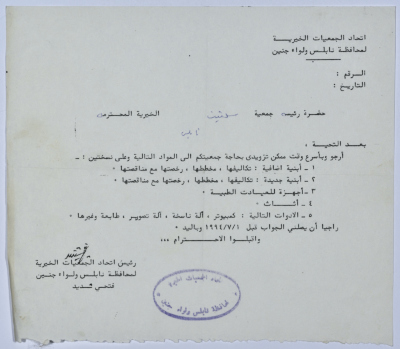 اتحاد الجمعيات الخيرية
لمحافظة نابلس ولواء جنين
الرقم :
التاريخ :
حضرة رئيس جمعية الخيرية المحترمة
نابلس
بعد التحية ،
أرجو وبأسرع وقت ممكن تزويدي بحاجة جمعيتكم الى المواد التالية وعلى نسختين :-
١ - أبنية اضافية : تكاليفها ، مخططها ، رخصتها مع مناقصتها .
٢ - أبنية جديدة : تكاليفها ، مخططها ، رخصتها مع مناقصتها .
٣ - أجهزة للعيادات الطبية .
٤ - أثاث .
٥ - الادوات التالية : كمبيوتر ، آلة ناسخة ، آلة تصوير ، طابعة وغيرها .
راجيا أن يصلني الجواب قبل ١٩٩٤/٧/١ وباليد .
واقبلوا الاحترام ،،،
رئيس اتحاد الجمعيات الخيرية
لمحافظة نابلس ولواء جنين
اتحاد الجمعيات الخيرية
لمحافظة نابلس ولواء جنين